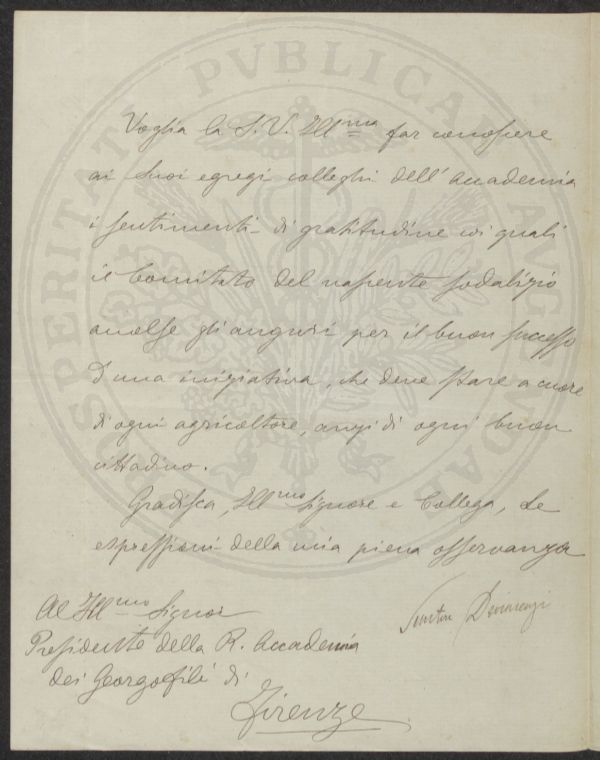 PROSPERITATI PVBLICAE AVGENDAE
Voglia la S. V. Ill.ma far conoscere
ai suoi egregi colleghi dell'Accademia
i sentimenti di gratitudine coi quali
il Comitato del nascente sodalizio
accolse gli auguri per il buon successo
d'una iniziativa, che deve stare a cuore
di ogni agricoltore, anzi di ogni buon
cittadino.
Gradisca, Ill.mo Signore e Collega, le
espressioni della mia piena osservanza
Al Ill.mo Signor
Presidente della R. Accademia
dei Georgofili di
Firenze